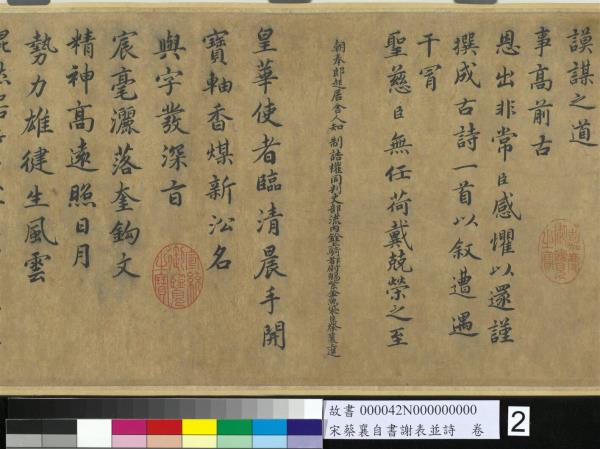 謨謀之道
事高前古
恩出非常臣感懼以還謹
撰成古詩一首以叙遭遇
干冒
聖慈臣無任荷戴兢榮之至
朝奉郎起居舍人知制誥權同判吏部流內銓騎都尉賜紫金魚袋臣蔡襄進
皇華使者臨清晨手開
寶軸香煤新沁名
與字發深旨
宸毫灑落奎鈎文
精神高遠照日月
勢力雄健生風雲
故書 000042N000000000
宋蔡襄自書謝表並詩 卷
2